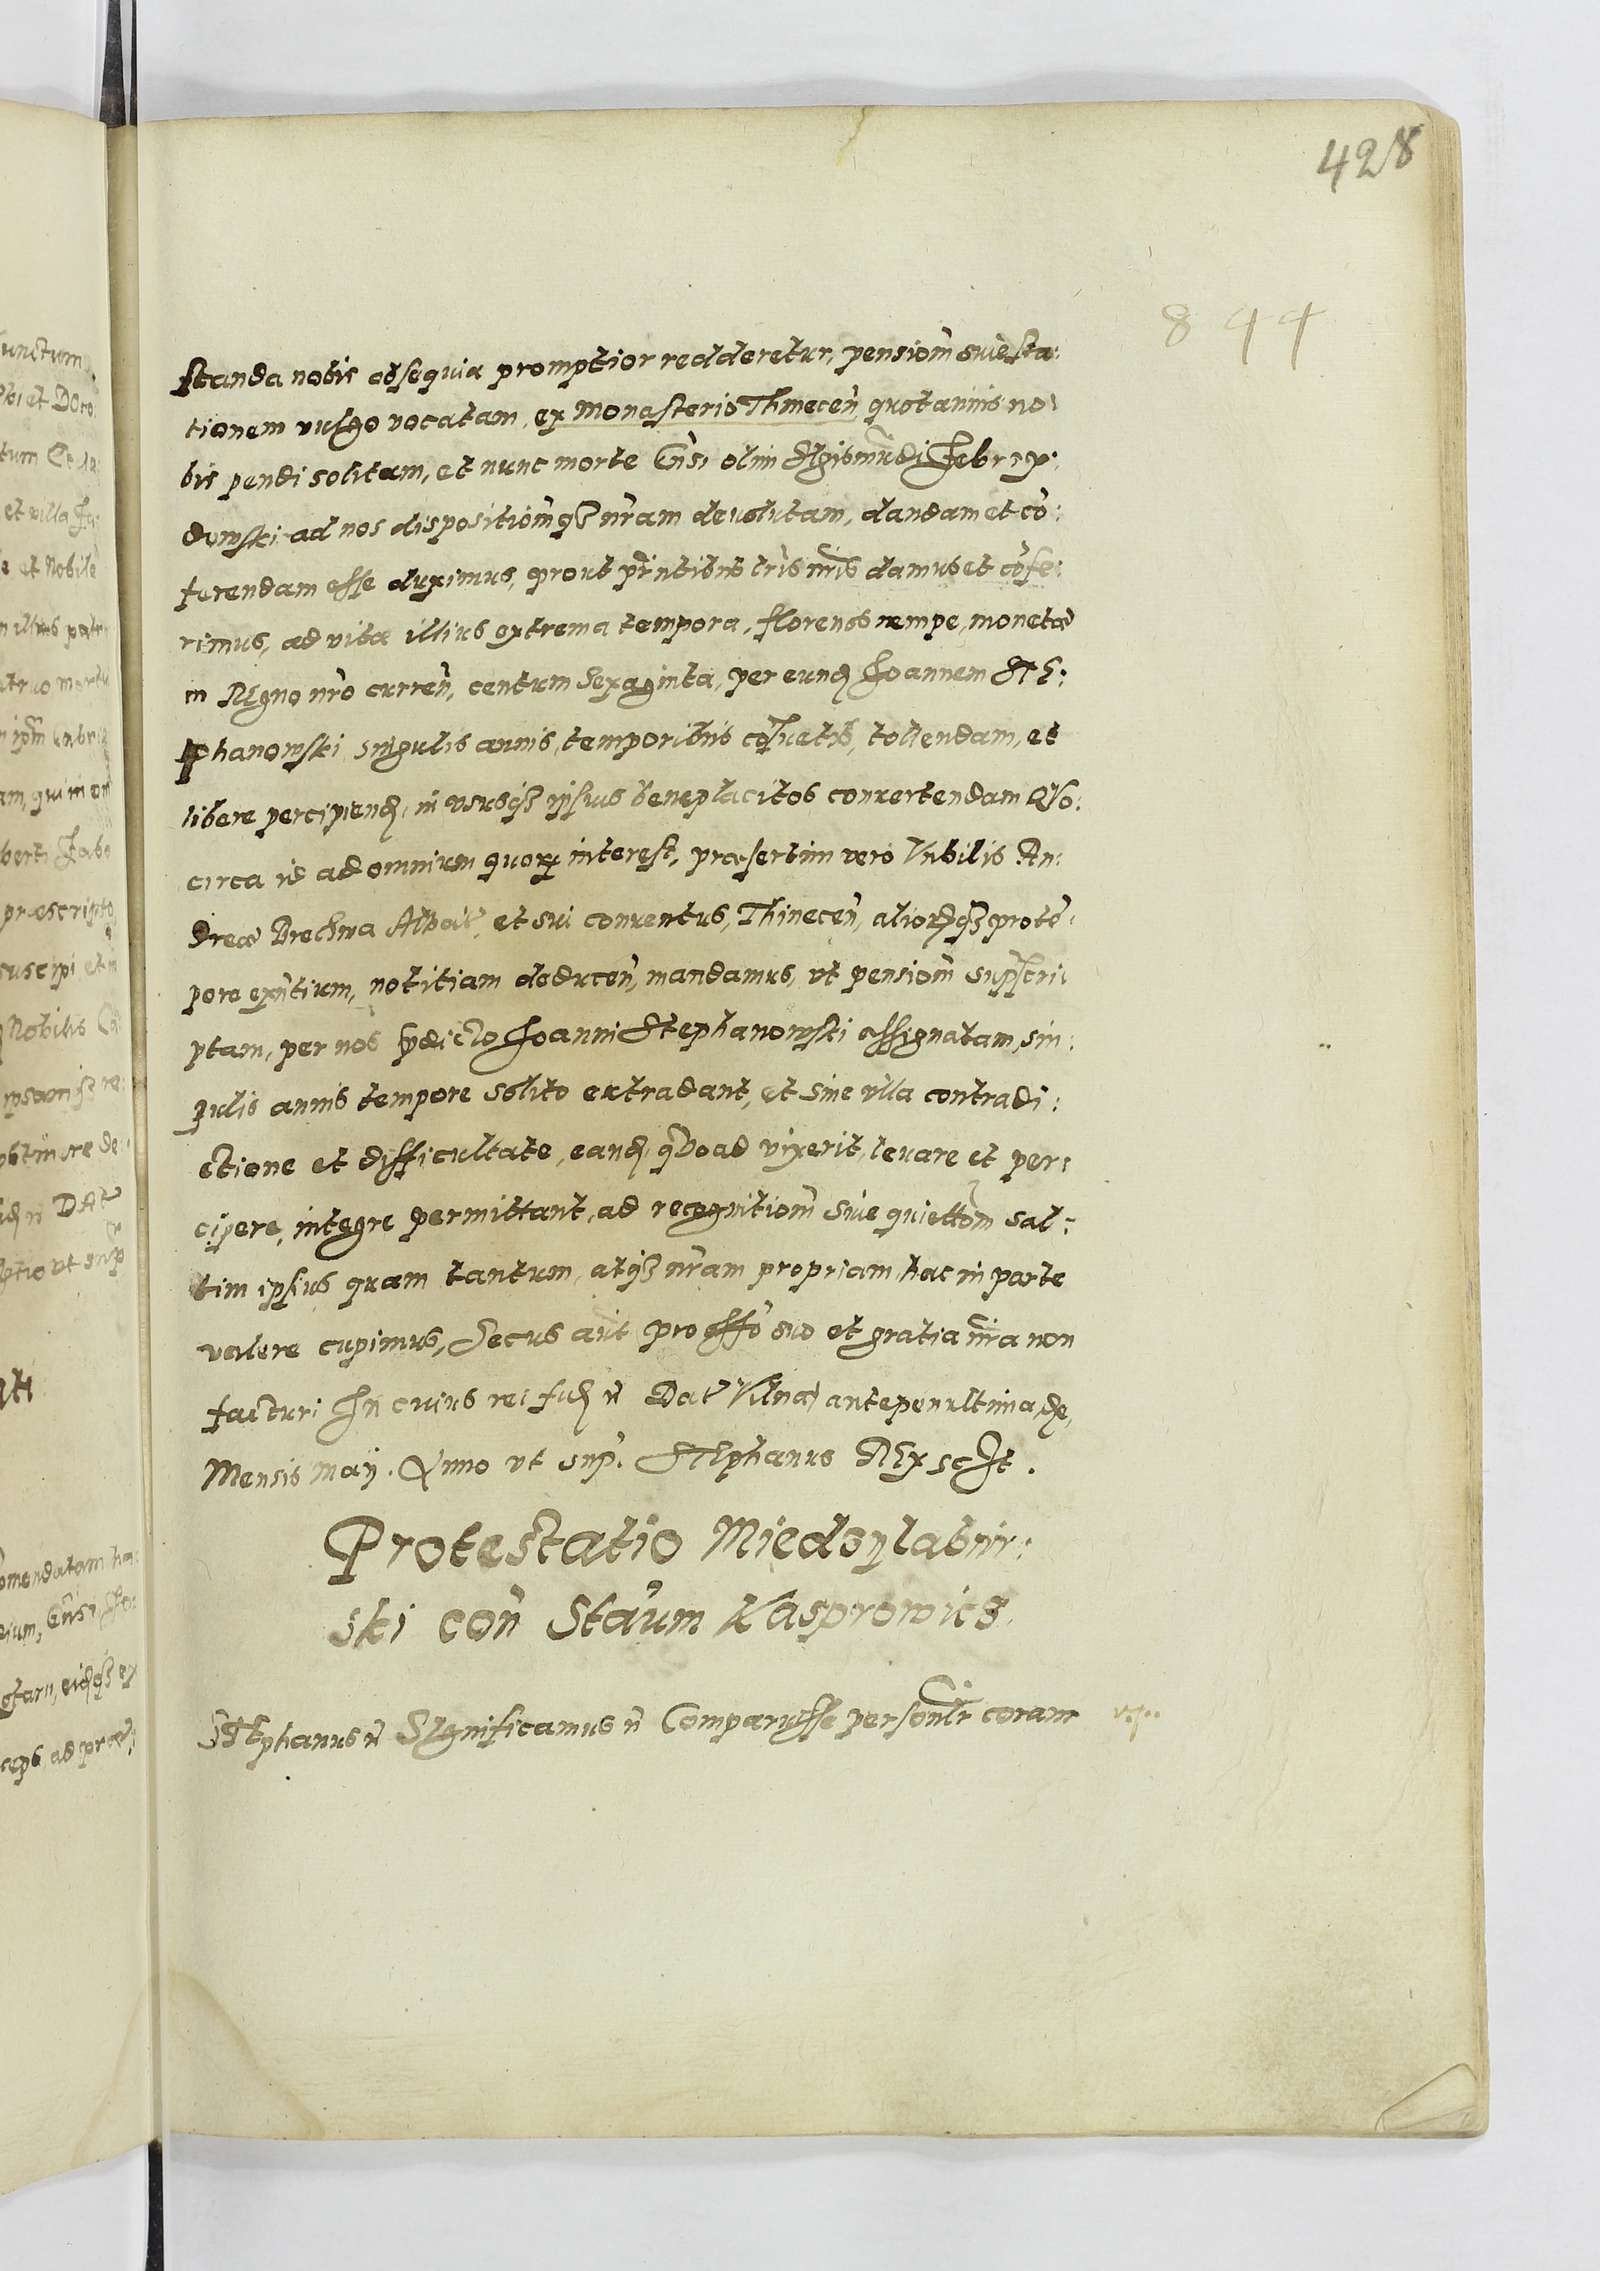 428
844
standa nobis obsequia promptior redderetur, pensiom̃ suiesta:
tionem vulgo vocatam, ex Monasterio Thinecen̄ quotannis no:
bis pendi solitam, et nunc morte Gn̄si olim Sigismūdi Febr
dowski ad nos dispositiom̃qȝ nr̄am deuolutam, dandam et cō:
ferendam esse duximus, prout pr̄ntibus lr̄is nr̄is damus et cōfe:
rimus, ad vitæ illius extrema tempora, florenos nempe, monetæ
in REgno nr̄o curren̄, centum Sexaginta, per eund Joannem STE:
phanowski singulis annis, temporibus cōsuetis, tollendam, et
libere percipiend, in vsusqȝ ipsius beneplacitos conuertendam QVo:
circa id ad omnium quorȝ interest, præsertim vero Vnbilis An:
dreæ Brechwa Abbat̄, et sui conuentus, Thinecen̄, aliorqȝ pro tē:
pore exn̄tium, notitiam deducen̄, mandamus, vt pensiom̃ supscri:
ptam, per nos pdicto Joanni Stephanowski assignatam, sin:
gulis annis tempore solito extradant, et sine vlla contradi:
ctione et difficultate, eand, qvoad vixerit, leuare et per:
cipere, integre permittant, ad recognitiom̃ siue quiettom̃ sal:
tim ipsius quam tantum, atqȝ nr̄am propriam, hac in parte
valere cupimus, Secus aūt pro offō suo et gratia nr̄a non
facturi Jn cuius rei fid n̄ Dat̄ Vilnæ antepenultima die,
Mensis Maij. Anno vt sup̄. STEphanus REx scst.
Protestatio Miedzylabnir:
ski con̄ Stāum Kasprowicz.
STEphanus n̄ SIgnificamus n̄ Comparuisse personlr̄ coram